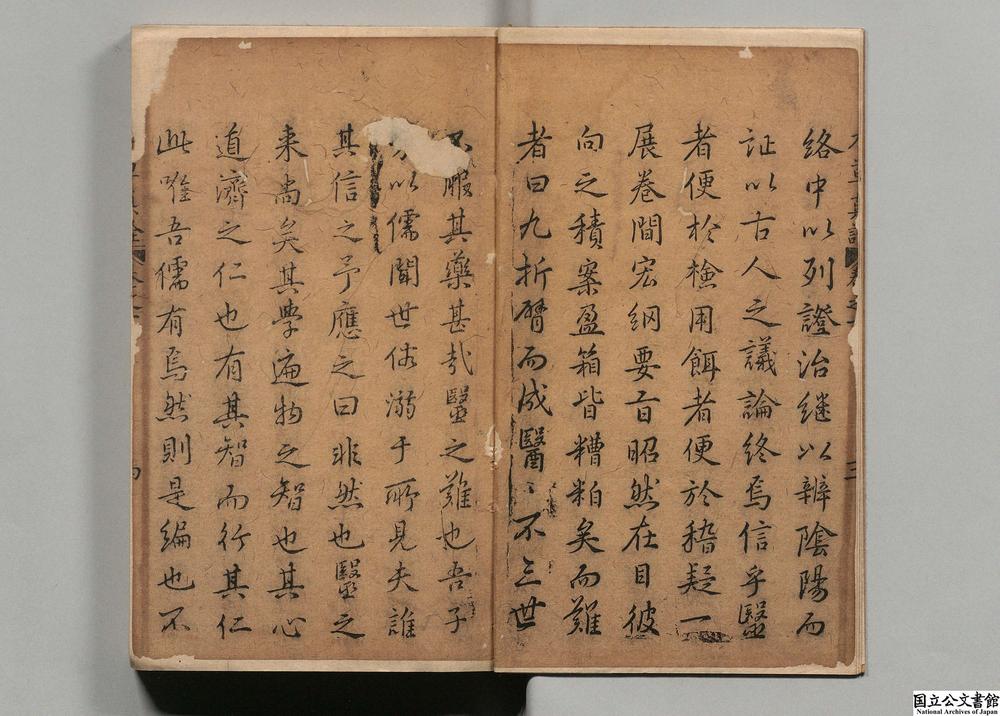 絡中以列證治継以辨陰陽而
証以古人之議論終焉信乎醫
者便於檢用餌者便於稽疑一
展巻間宏綱要旨昭然在目彼
向之積案盈箱皆糟粕矣而難
者曰九折臂而成醫醫不三世
不服其藥甚哉醫之難也吾子
以儒聞世俗溺于所見夫誰
其信之予應之曰非然也醫之
来尚矣其學遍物之智也其心
道濟之仁也有其智而行其仁
此唯吾儒有焉然則是編也不
国立公文書館
National Archives of Japan